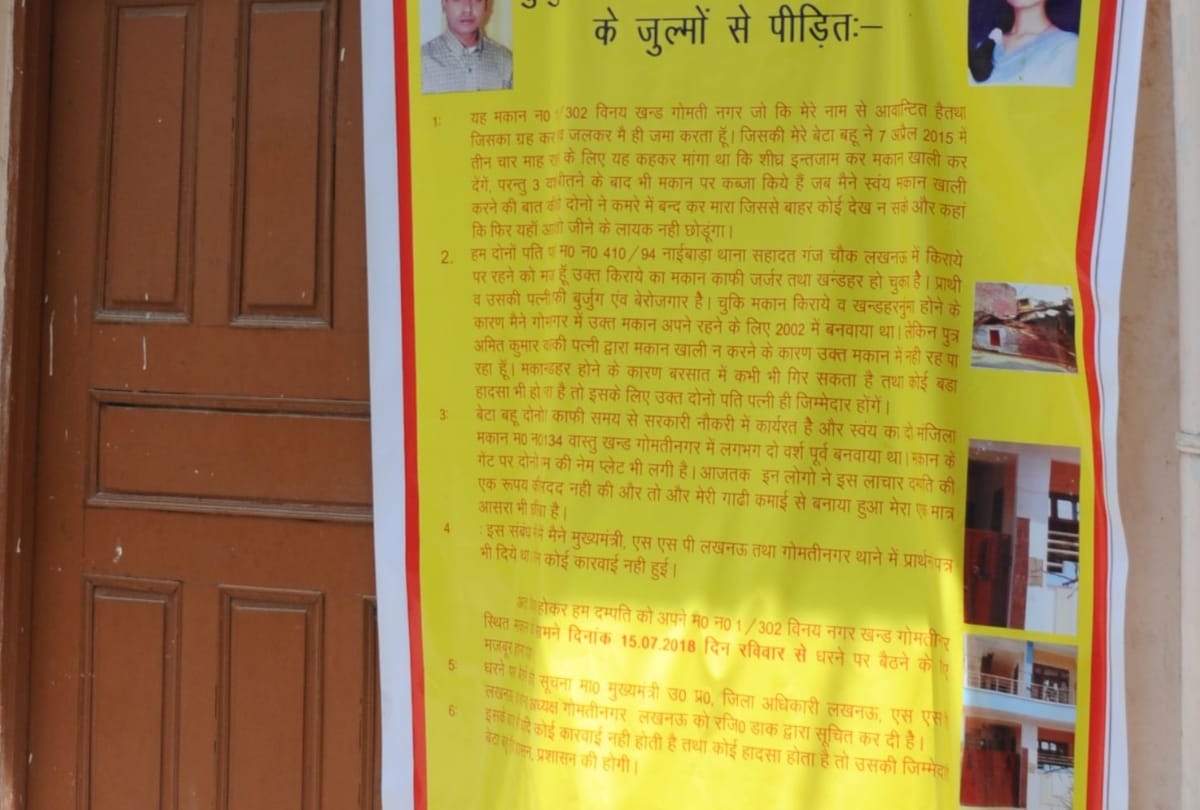 के जुल्मों से पीड़ितः–
1: यह मकान न0 /302 विनय खन्ड गोमती नगर जो कि मेरे नाम से आवान्टित हैतथा
जिसका ग्रह कर जलकर मै ही जमा करता हूँ। जिसकी मेरे बेटा बहू ने 7 अप्रैल 2015 में
तीन चार माह के लिए यह कहकर मांगा था कि शीघ्र इन्तजाम कर मकान खाली कर
देगें, परन्तु 3 बीतने के बाद भी मकान पर कब्जा किये हैं जब मैने स्वंय मकान खाली
करने की बात की दोनो ने कमरे में बन्द कर मारा जिससे बाहर कोई देख न सके और कहां
कि फिर यहाँ जीने के लायक नही छोडूंगा।
2. हम दोनों पति म0 न0 410/94 नाईबाड़ा थाना सहादत गंज चौक लखनऊ में किराये
पर रहने को हूँ उक्त किराये का मकान काफी जर्जर तथा खंन्डहर हो चुका है। प्रार्थी
व उसकी पत्नी बुर्जुग एंव बेरोजगार है। चुकि मकान किराये व खन्डहरनुमा होने के
कारण मैने उक्त मकान अपने रहने के लिए 2002 में बनवाया था। लेकिन पुत्र
अमित कुमार पत्नी द्वारा मकान खाली न करने के कारण उक्त मकान में नही रह पा
रहा हूँ। होने के कारण बरसात में कभी भी गिर सकता है तथा कोई बडा
हादसा भी हो है तो इसके लिए उक्त दोनो पति पत्नी ही जिम्मेदार होंगें।
3: बेटा बहू दोनो काफी समय से सरकारी नौकरी में कार्यरत है और स्वंय का दो मंजिला
मकान म0 वास्तु खन्ड गोमतीनगर में लगभग दो वर्श पूर्व बनवाया था। मकान के
गेंट पर की नेम प्लेट भी लगी है। आजतक इन लोगो ने इस लाचार दम्पति की
एक रूपय नही की और तो और मेरी गाढी कमाई से बनाया हुआ मेरा एक मात्र
आसरा भी है।
4 : इस मैने मुख्यमंत्री, एस एस पी लखनऊ तथा गोमतीनगर थाने में प्रार्थनापत्र
भी दिये कोई कारवाई नही हुई।
होकर हम दम्पति को अपने म0 न0 1/302 विनय नगर खन्ड गोमतीनगर
स्थित दिनांक 15.07.2018 दिन रविवार से धरने पर बैठने के
मजबूर
5: धरने पर सूचना मा0 मुख्यमंत्री उ0 प्र0, जिला अधिकारी लखनऊ, एस एस
गोमतीनगर लखनऊ को रजि0 डाक द्वारा सूचित कर दी है।
6: कोई कारवाई नही होती है तथा कोई हादसा होता है तो उसकी
प्रशासन की होगी।